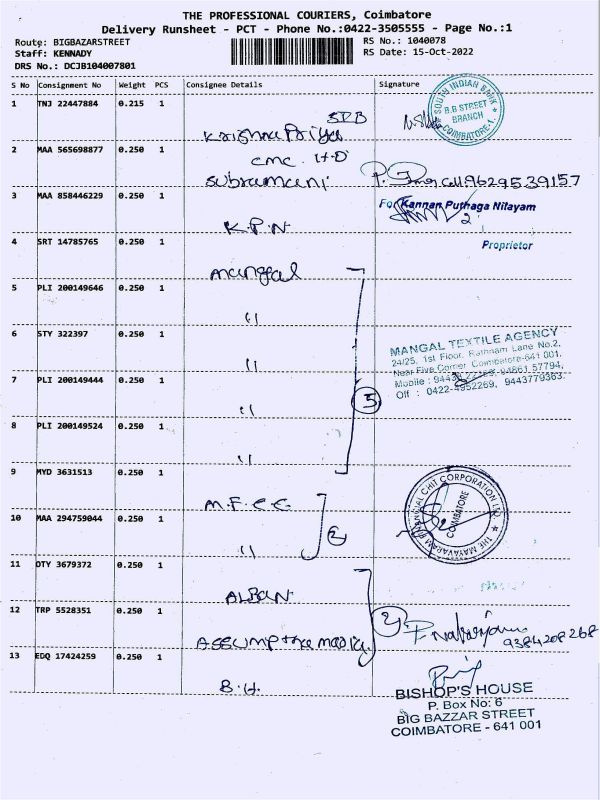 THE PROFESSIONAL COURIERS, Coimbatore
Delivery Runsheet - PCT - Phone No.:0422-3505555 - Page No.:1
Route: BIGBAZARSTREET
Staff: KENNADY
DRS No.: DCJB104007801
RS No.: 1040078
RS Date: 15-Oct-2022
S No Consignment No Weight PCS Consignee Details Signature
1 TNJ 22447884 0.215 1
SIB
Krishna Priya
SOUTH INDIAN BANK
B.B STREET
BRANCH
COIMBATORE-1.
2 MAA 565698877 0.250 1
cmc. H.D
Subramani
9629539157
3 MAA 858446229 0.250 1
K.P.N
For Kannan Puthaga Nilayam
Proprietor
4 SRT 14785765 0.250 1
mangal
5 PLI 200149646 0.250 1
"
6 STY 322397 0.250 1
"
MANGAL TEXTILE AGENCY
24/25, 1st Floor, Rathnam Lane No.2,
Near Five Corner, Coimbatore-641 001.
Mobile : 94861 57794,
Off : 0422-4952269, 9443779363.
7 PLI 200149444 0.250 1
"
5
8 PLI 200149524 0.250 1
"
9 MYD 3631513 0.250 1
M.F.C.C
THE MAYAVARAM FINANCIAL CHIT CORPORATION LTD.
COIMBATORE
10 MAA 294759044 0.250 1
"
2
11 OTY 3679372 0.250 1
ALBAN
12 TRP 5528351 0.250 1
2
9384208268
13 EDQ 17424259 0.250 1
B.H.
BISHOP'S HOUSE
P. Box No: 6
BIG BAZZAR STREET
COIMBATORE - 641 001